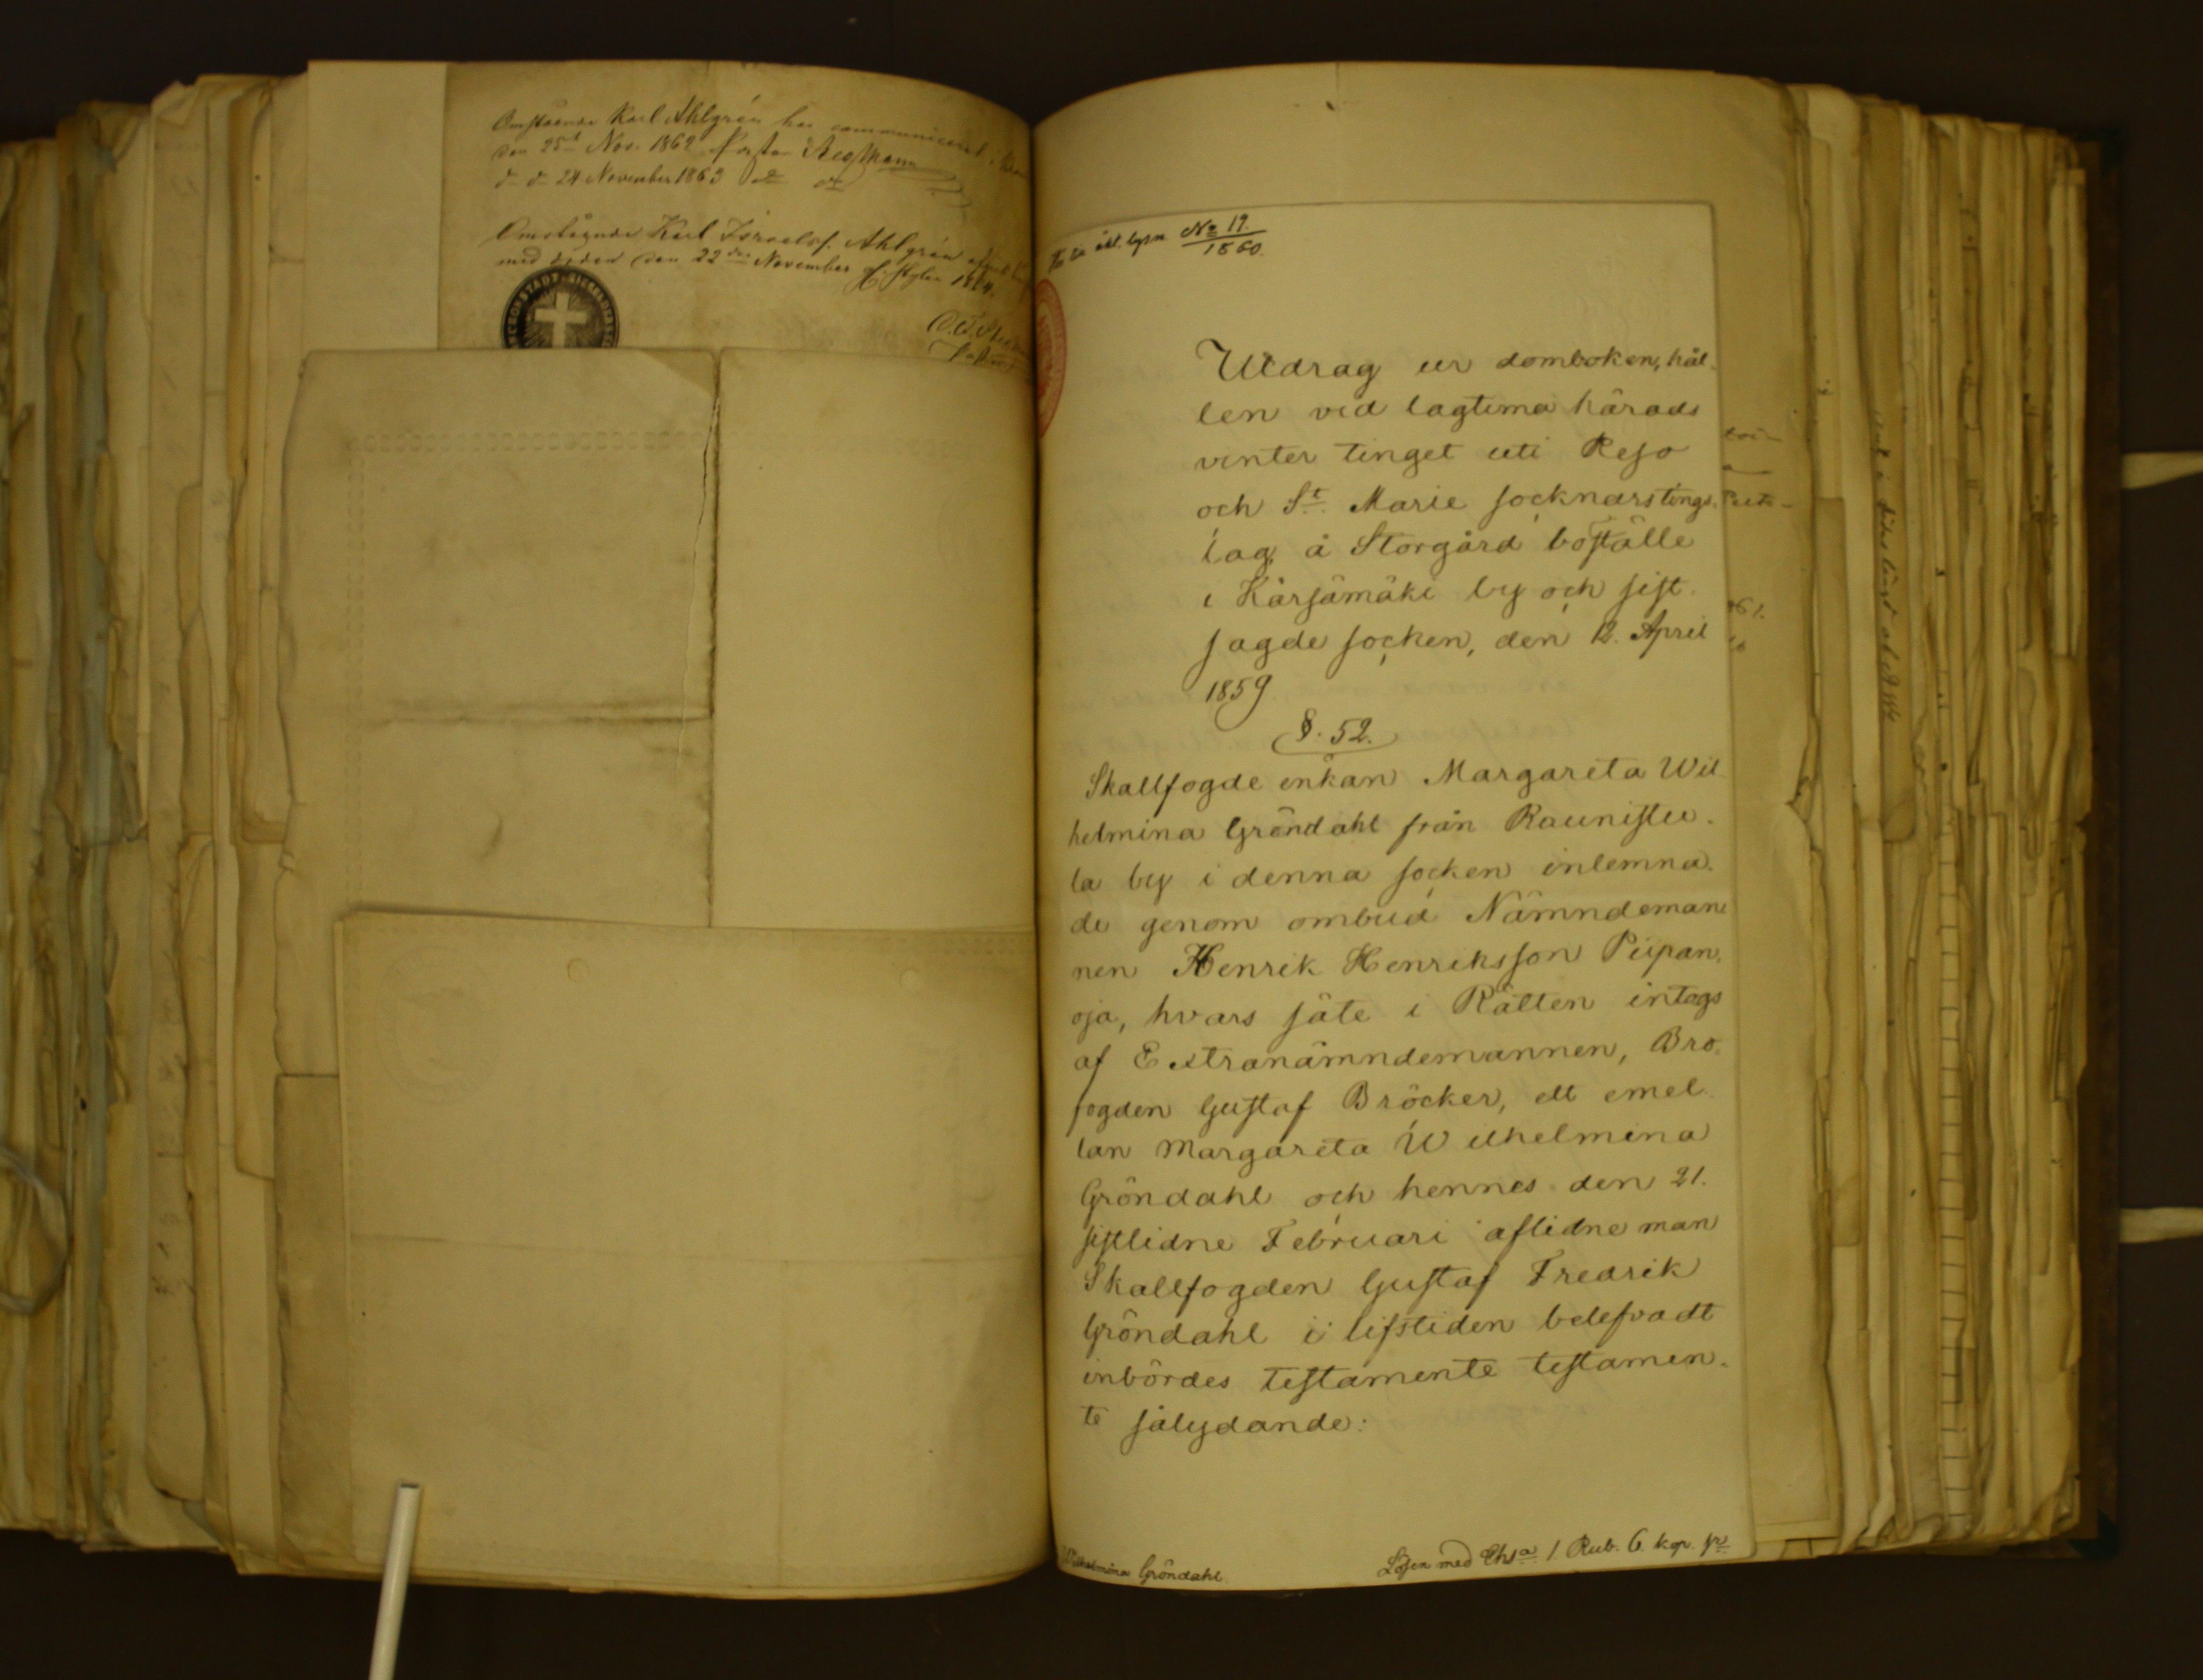 Omstående Karl Ahlgrén har communicerat i
den 25d Nov. 1862 Pastor
d- d- 24 November 1863 d- d-
Omstående Karl Israelsf. Ahlgrén
med döden den 22dra November 1864.
No 19.
1860.
Utdrag ur domboken, hål-
len vid lagtima härads
vinter tinget uti Reso
och St. Marie socknars tings-
lag å Storgård boställe
i Kärsämäki by och sist-
sagde socken, den 12. April
1859
§. 52.
Skallfogde enkan Margareta Wil-
helmina Gröndahl från Raunistu-
la by i denna socken inlemna-
de genom ombud Nämndeman-
nen Henrik Henriksson Piipan-
oja, hvars säte i Rätten intogs
af Extranämndemannen, Bro-
fogden Gustaf Bröcker, ett emel-
lan Margareta Wilhelmina
Gröndahl och hennes den 21.
sistlidne Februari aflidne man
Skallfogden Gustaf Fredrik
Gröndahl i lifstiden belefvadt
inbördes testamente testamen-
te sålydande:
Wilhelmina Gröndahl.
Lösen med Chta 1 Rub. 6. kop. sr